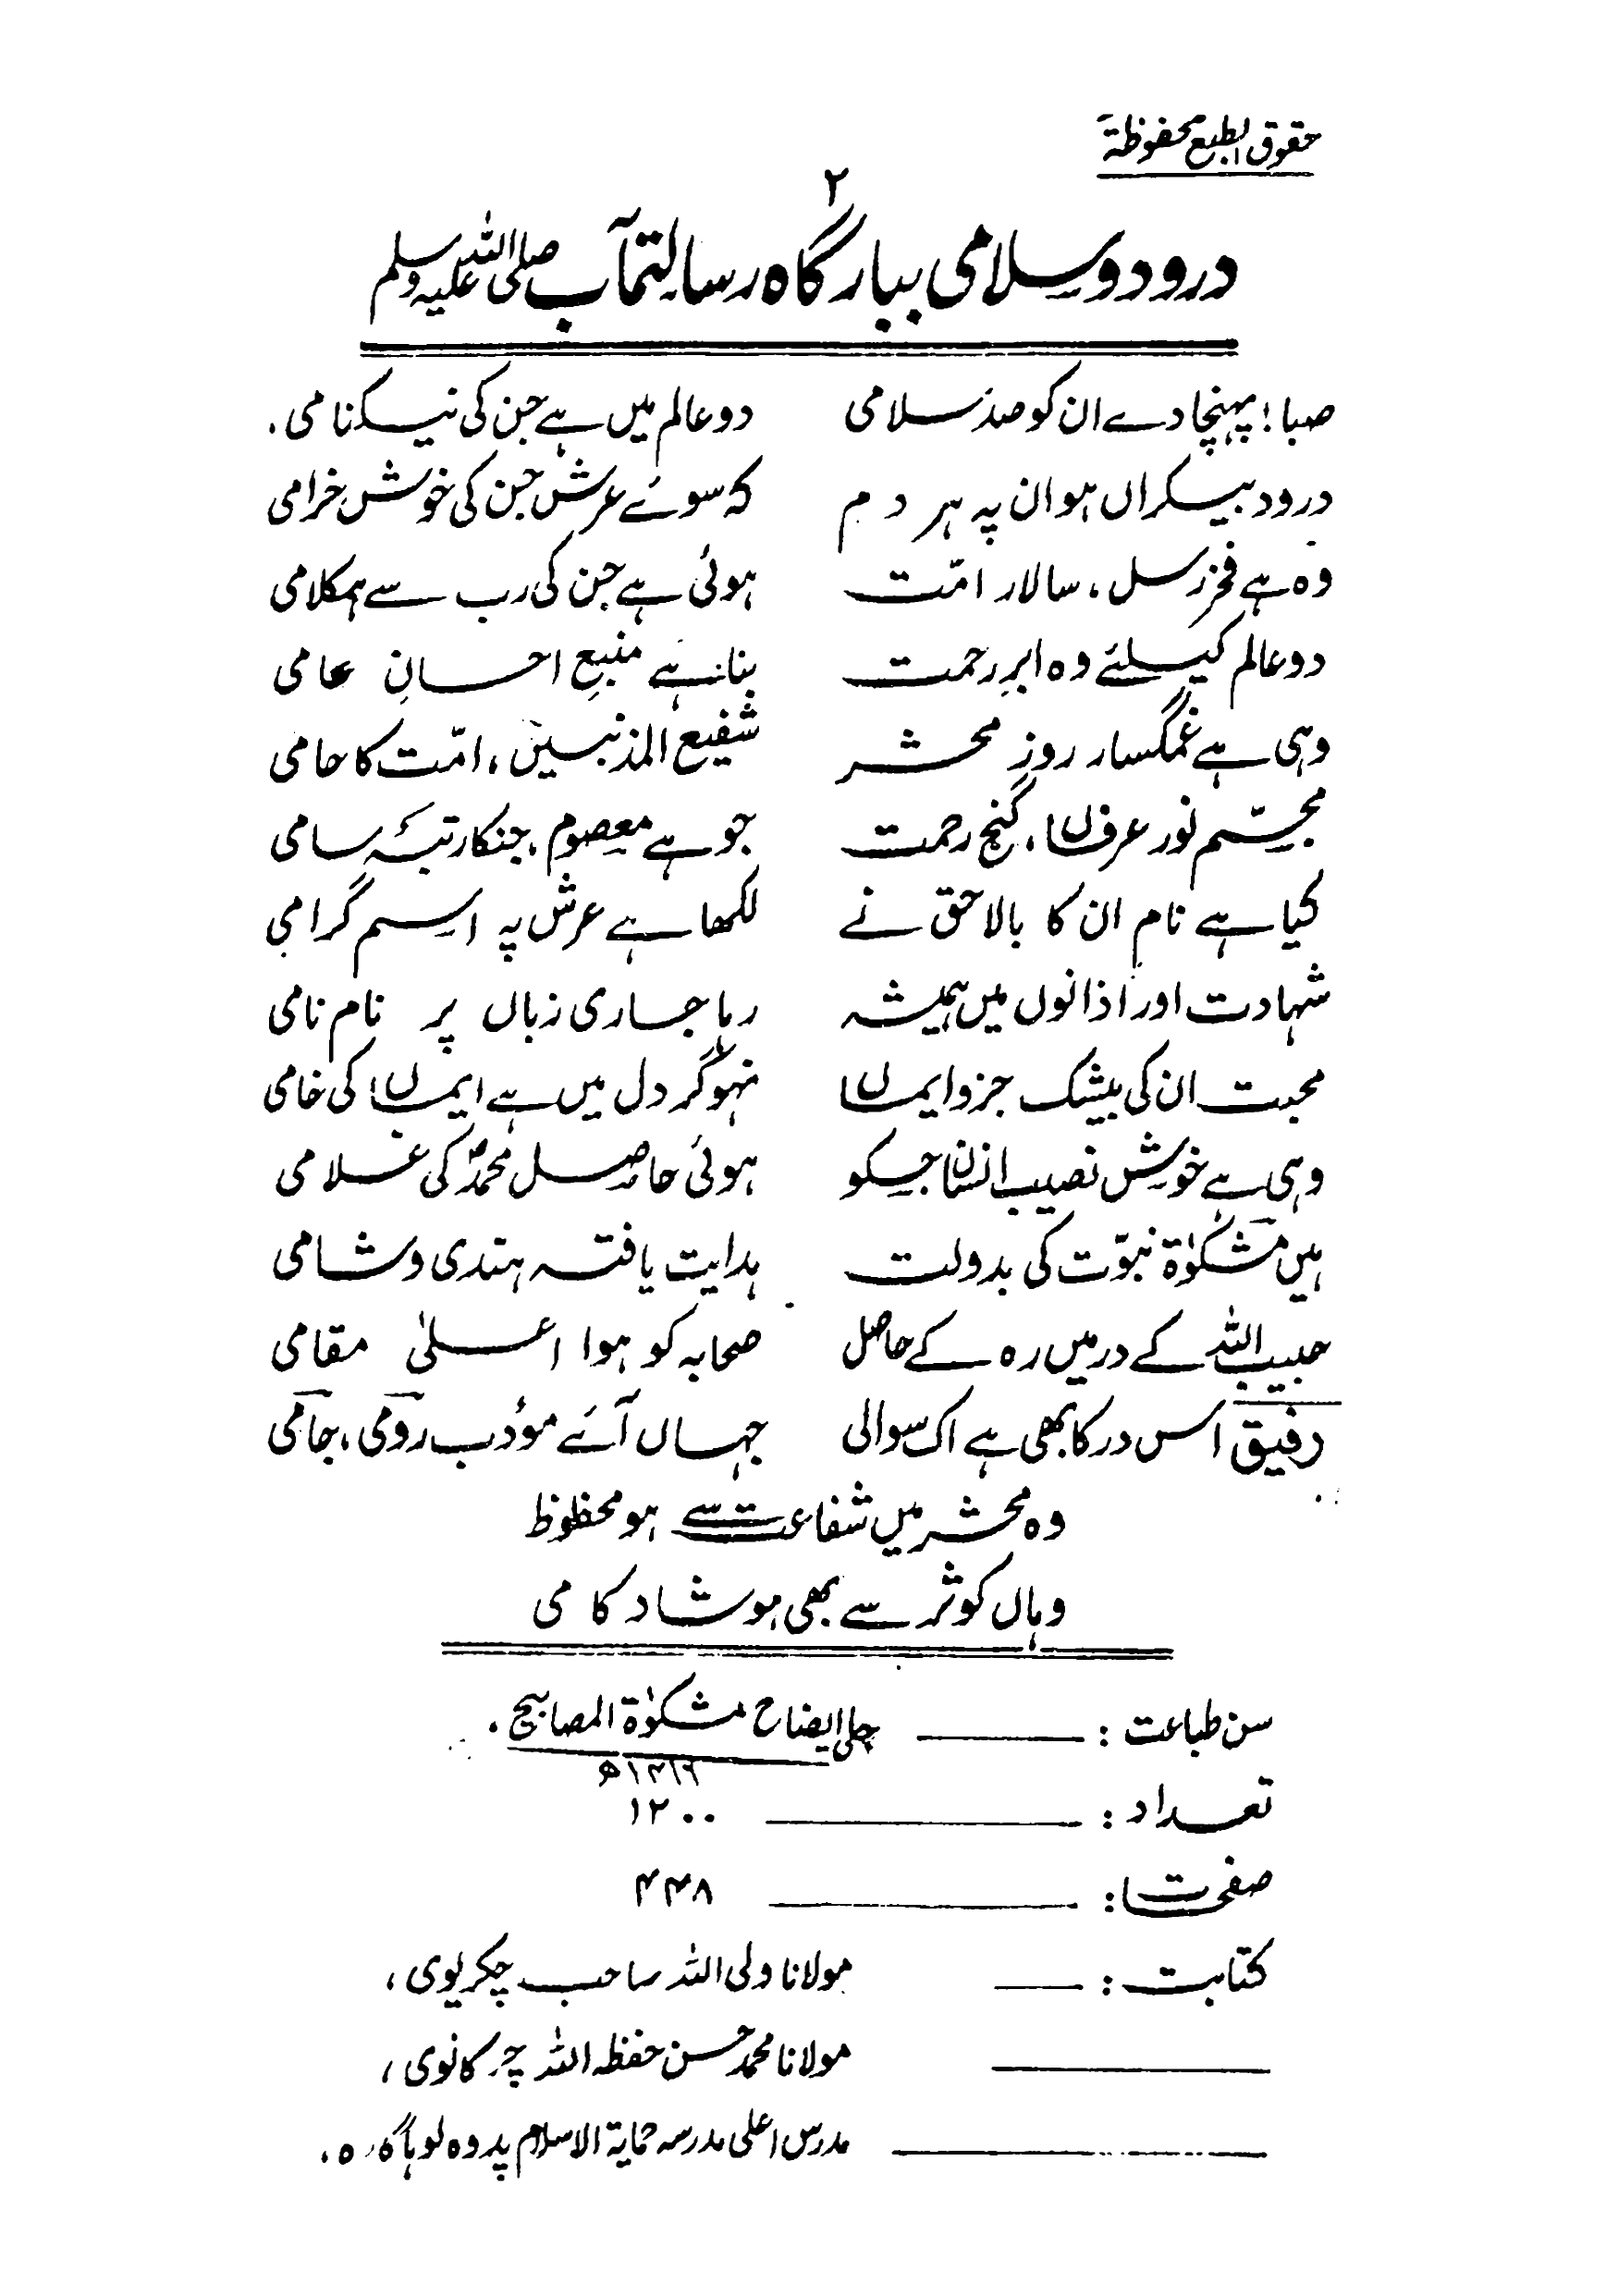 حقوق الطبع محفوظة
۲
درود و سلامی ببارگاہ رسالتمآب صلی اللہ علیہ وسلم
صبا! پہنچا دے ان کو صد سلامی دو عالم میں ہے جن کی نیکنامی.
درود بیکراں ہو ان پہ ہر دم کہ سوئے عرش جن کی خوش خرامی
وہ ہے فخر رسل، سالار امّت ہوئی ہے جن کی رب سے ہمکلامی
دو عالم کیلئے وہ ابرِ رحمت بنا ہے منبعِ احسانِ عامی
وہی ہے غمگسار روزِ محشر شفیع المذنبیں، امّت کا حامی
مجسّم نور عرفاں، گنج رحمت جو ہے معصوم، جنکا رتبۂ سامی
کیا ہے نام ان کا بالا حق نے لکھا ہے عرش پہ اسم گرامی
شہادت اور اذانوں میں ہمیشہ رہا جاری زباں پر نام نامی
محبت ان کی بیشک جزو ایماں نہو گر دل میں ہے ایماں کی خامی
وہی ہے خوش نصیب انساں جسکو ہوئی حاصل محمدؐ کی غلامی
ہیں مشکوٰۃ نبوّت کی بدولت ہدایت یافتہ ہندی و شامی
حبیب اللہ کے در میں رہ کے حاصل صحابہ کو ہوا اعلیٰ مقامی
رفیق اس در کا بھی ہے اک سوالی جہاں آئے مؤدب رومی، جامی
وہ محشر میں شفاعت سے ہو محظوظ
وہاں کوثر سے بھی ہو شاد کامی
سن طباعت: جلی ایضاح مشکوٰۃ المصابیح.
۱۴۱۶ھ
تعداد: ۱۲۰۰
صفحات: ۴۴۸
کتابت: مولانا ولی اللہ ساحب چکریوی،
مولانا محمد حسن حفظہ اللہ کانوی،
مدرس اعلی مدرسہ حمایۃ الاسلام پدوہ لوہاگاڑہ.